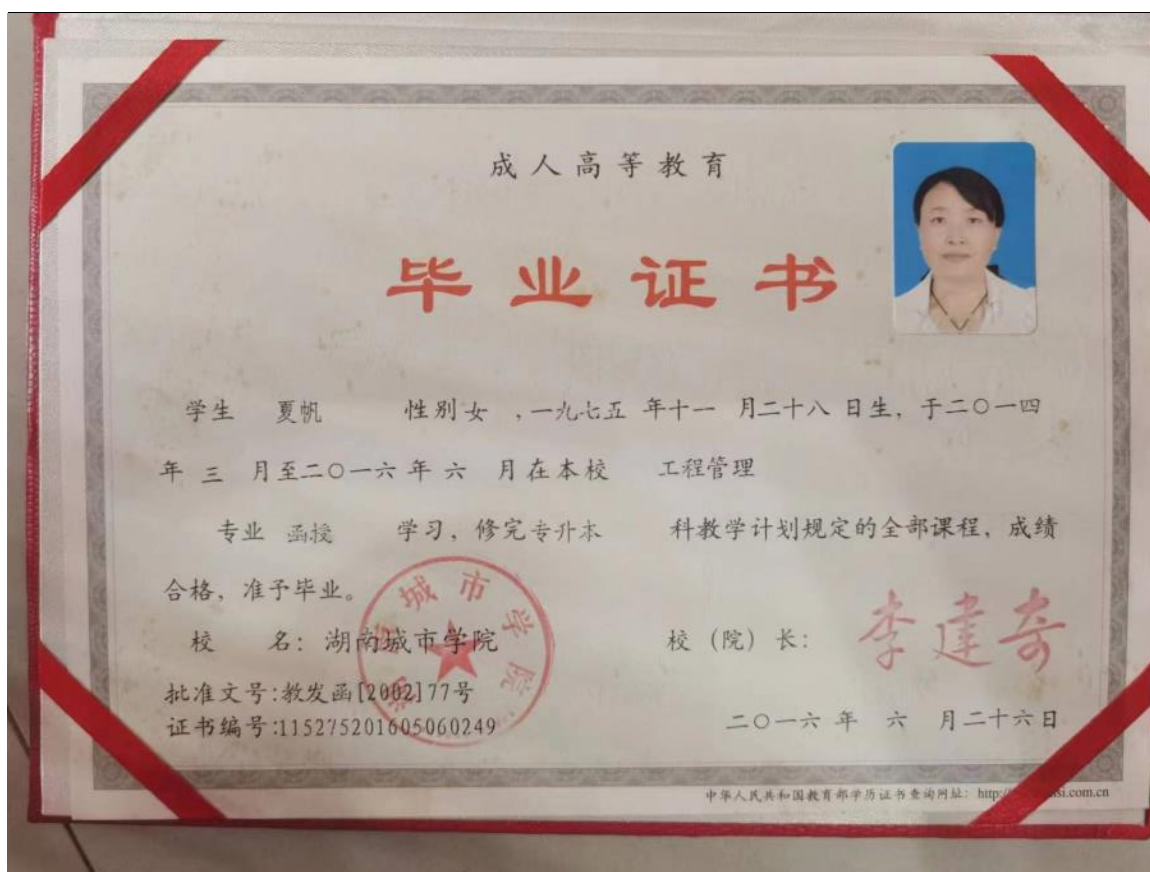 成人高等教育
毕业证书
学生 夏帆 性别女 ,一九七五 年十一 月二十八 日生，于二〇一四
年 三 月至二〇一六 年 六 月在本校 工程管理
专业 函授 学习，修完专升本 科教学计划规定的全部课程，成绩
合格，准予毕业。
校 名：湖南城市学院 校（院）长：李建奇
城市学院
批准文号:教发函[2002]77号
证书编号:115275201605060249
二〇一六 年 六 月二十六日
中华人民共和国教育部学历证书查询网址： http:/ si.com.cn